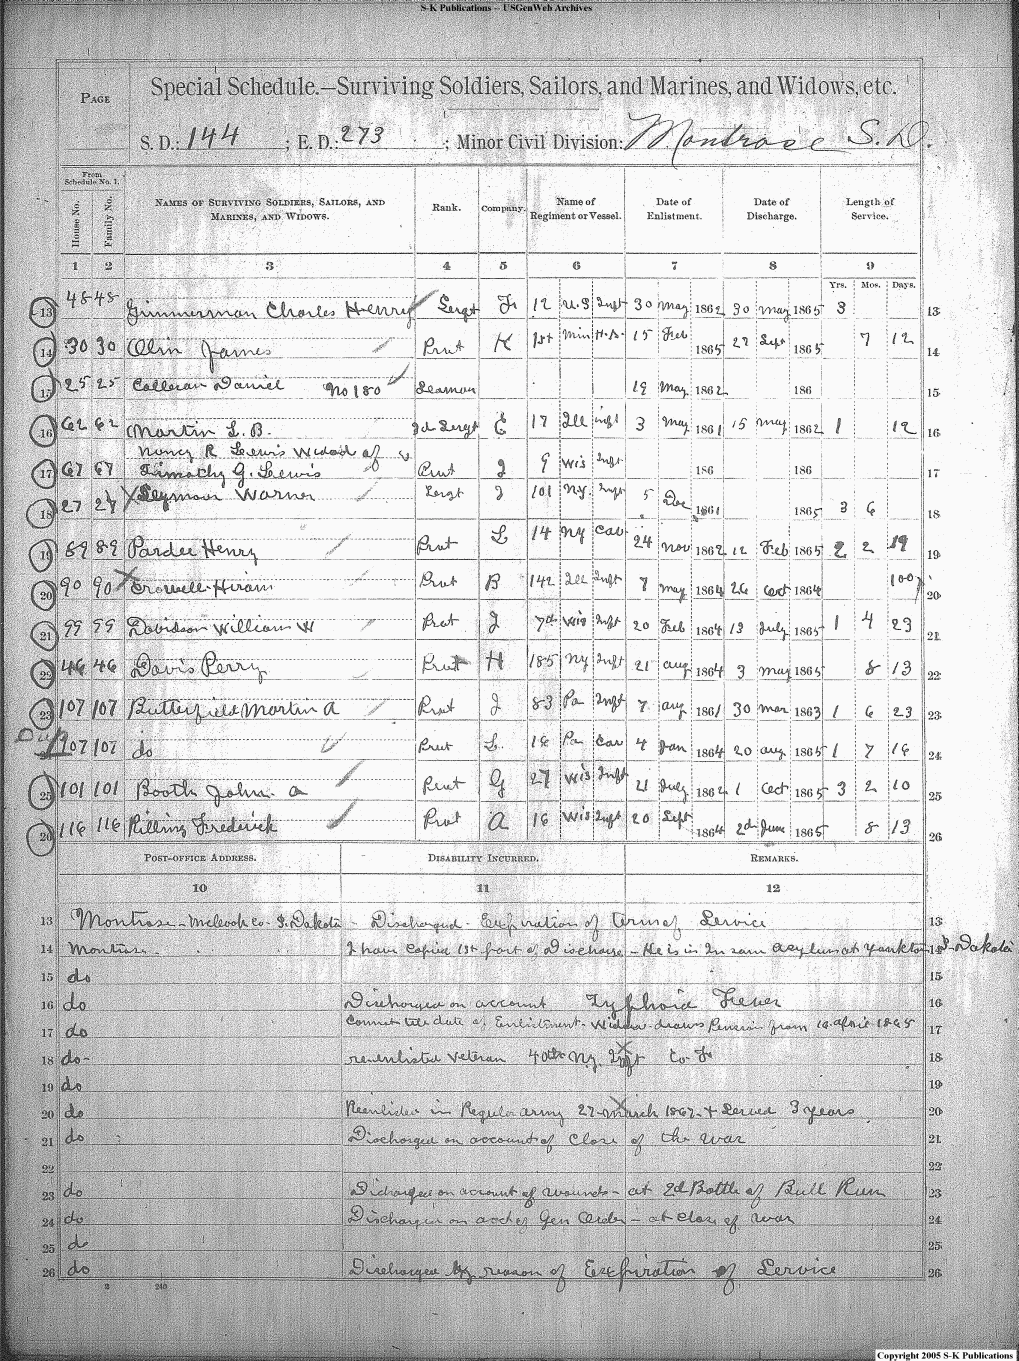 S-K Publications -- USGenWeb Archives
PAGE
Special Schedule.—Surviving Soldiers, Sailors, and Marines, and Widows, etc.
S. D.: 144 ; E. D.: 273 ; Minor Civil Division: Montrose S. D.
From Schedule No. 1.
House No. Family No. NAMES OF SURVIVING SOLDIERS, SAILORS, AND MARINES, AND WIDOWS. Rank. Company. Name of Regiment or Vessel. Date of Enlistment. Date of Discharge. Length of Service.
1 2 3 4 5 6 7 8 9
Yrs. Mos. Days.
13 48 48 Charles Henry Sergt 12 U.S Inft 30 May 1862 30 May 1865 3 13
14 30 30 Olin James Prvt K 1st Min H.A. 15 Feb 1865 27 Sept 1865 7 12 14
15 25 25 Daniel No 180 Seaman 19 May 1862 186 15
16 62 62 Martin L. B. Sergt 17 Ill inft 3 May 1861 15 May 1862 1 12 16
Nancy R Lewis Widow of
17 67 67 Timothy G. Lewis Prvt J 9 Wis Inft 186 186 17
18 27 27 X Seymour Warner Sergt J 101 N.Y. Inft 5 Dec 1861 1865 3 6 18
19 89 89 Pardee Henry Prvt L 14 NY Cav 24 Nov 1862 12 Feb 1865 2 2 19 19
20 90 90 X Crowell Hiram Prvt B 142 Ill Inft 7 May 1864 26 Oct 1864 100 20
21 99 99 Davidson William W Prvt J 7th Wis Inft 20 Feb 1864 13 July 1865 1 4 23 21
22 46 46 Davis Perry Prvt H 185 NY Inft 21 aug 1864 3 may 1865 8 13 22
23 107 107 Butterfield Martin A Prvt J 83 Pa Inft 7 aug 1861 30 mar 1863 1 6 23 23
107 107 do Prvt L 16 Pa Cav 4 Jan 1864 20 aug 1865 1 7 16 24
25 101 101 Booth John. a Prvt G 27 Wis Inft 21 July 1862 1 Oct 1865 3 2 10 25
26 116 116 Rilling Frederick Prvt A 16 Wis Inft 20 Sept 1864 2d June 1865 8 13 26
POST-OFFICE ADDRESS. DISABILITY INCURRED. REMARKS.
10 11 12
13 Montrose - McCook Co - S. Dakota - Discharged - Expiration of term of Service 13
14 Montrose. I have Copied 1st part of Discharge - He is in In sam asylum at Yankton S. Dakota 14
15 do 15
16 do Discharged on account Typhoid Fever 16
17 do date of Enlistment - Widow draws Pension from 19 april 1865 17
18 do - reenlisted veteran 40th N.Y. Inft Co F 18
19 do 19
20 do Reenlisted in Regular army 27 March 1867 & Served 3 years 20
21 do Discharged on account of Close of the war 21
22 22
23 do Discharged on account of wounds - at 2d Battle of Bull Run 23
24 do Discharged on acct of Gen Order - at close of war 24
25 do 25
26 do Discharged by reason of Expiration of Service 26
2 240
Copyright 2005 S-K Publications